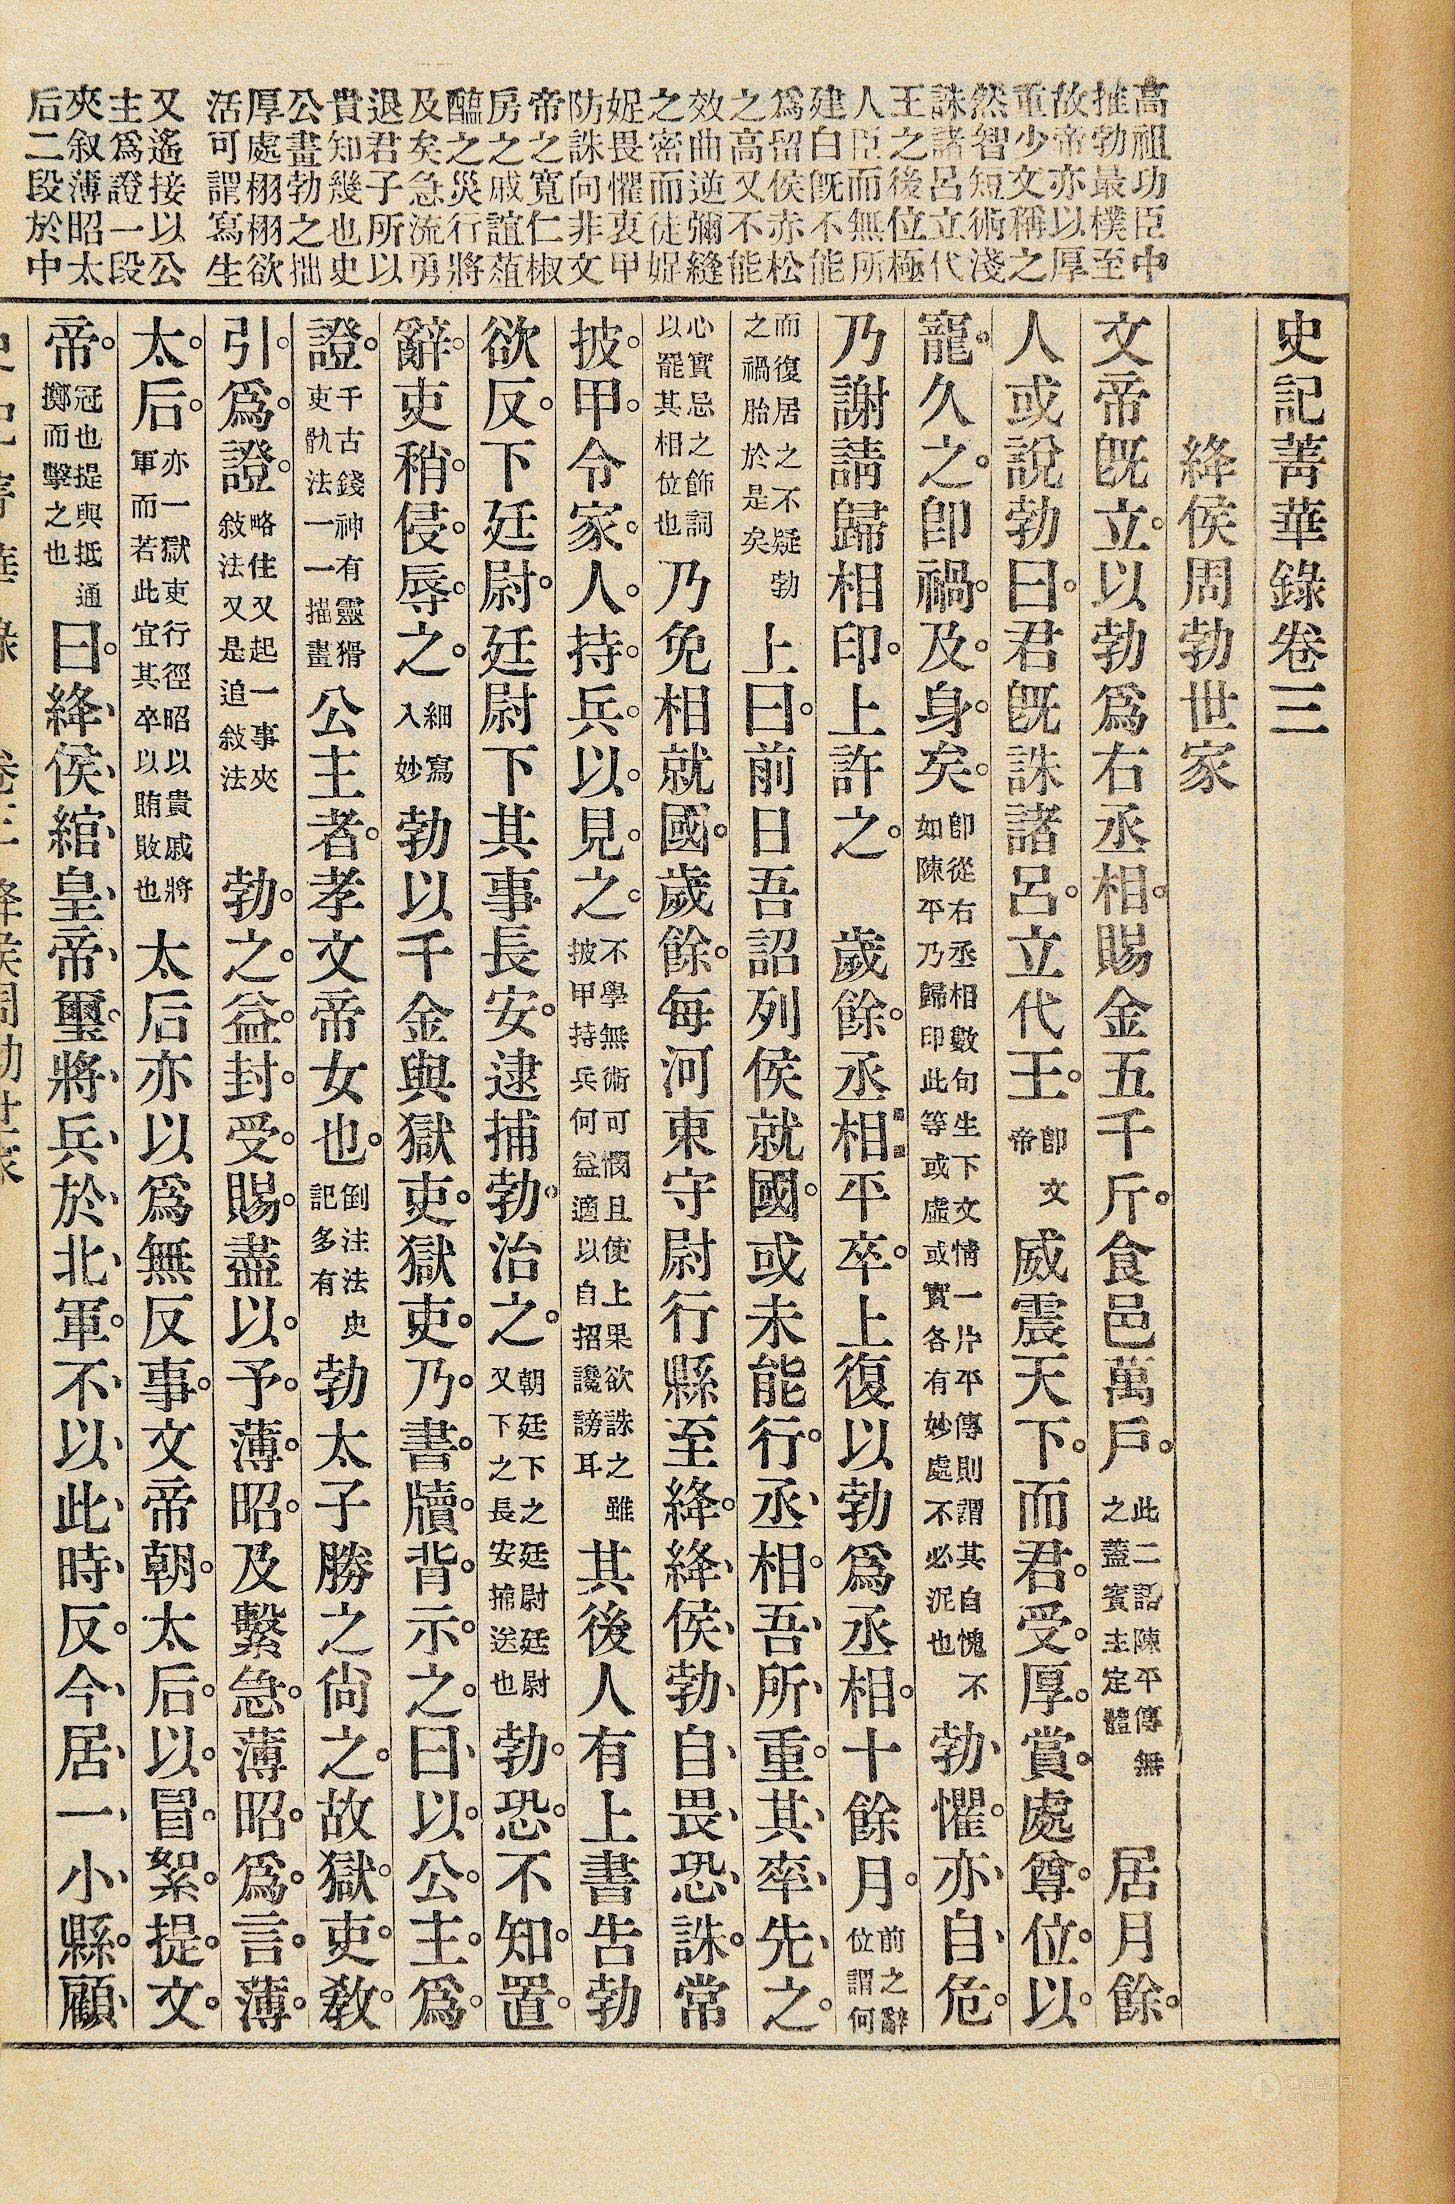 高祖功臣中
推勃最樸至
故帝亦以厚
重少文稱之
然智短術淺
誅諸呂立代
王之後位極
人臣而無所
建白既不能
爲留侯赤松
之高又不能
效曲逆彌縫
之密而徒娖
娖畏懼衷甲
防誅向非文
帝之寬仁椒
房之戚誼葅
醢之災行將
及矣急流勇
退君子所以
貴知幾也史
公畫勃之拙
厚處栩栩欲
活可謂寫生
又遙接以公
主爲證一段
夾叙薄昭太
后二段於中
史記菁華錄卷三
絳侯周勃世家
文帝既立。以勃爲右丞相。賜金五千斤。食邑萬戶。此二語陳平傳無之蓋賓主定體居月餘。
人或說勃曰。君既誅諸呂。立代王。卽文帝威震天下。而君。受。厚。賞。處尊。位。以
寵。久之。卽禍。及。身。矣。卽從右丞相數句生下文情一片平傳則謂其自愧不如陳平乃歸印此等或虛或實各有妙處不必泥也勃、懼。亦、自、危。
乃謝請歸相印。上許之。歲餘。丞相平卒。上復以勃爲丞相。十餘月。前之辭位謂何
而復居之不疑勃之禍胎於是矣上曰。前日吾詔列侯就國。或未能行。丞、相。吾、所、重。其、率、先、之。
心實忌之飾詞以罷其相位也乃免相就國。歲餘。每河東守尉行縣至絳。絳、侯、勃、自、畏、恐、誅。常
披。甲。令家。人。持。兵。以。見。之。不學無術可憫且使上果欲誅之雖披甲持兵何益適以自招讒謗耳其後人有上書告勃
欲反。下廷尉。廷尉下其事長安。逮捕勃。治之。朝廷下之廷尉廷尉又下之長安捕送也勃。恐。不知。置。
辭。吏稍。侵。辱。之。細寫入妙勃以千金與獄吏。獄吏。乃。書。牘。背。示。之。曰、以。公。主。爲。
證。千古錢神有靈猾吏骩法一一描畫公主者。孝文帝女也。倒注法史記多有勃太子勝之尙之。故獄。吏。敎。
引。爲。證。略住又起一事夾敍法又是追敍法勃。之。益。封。受。賜。盡以。予。薄。昭。及繫急。薄昭。爲。言。薄。
太。后。亦一獄吏行徑昭以貴戚將軍而若此宜其卒以賄敗也太后亦以爲無反事。文帝朝。太后。以。冒。絮。提。文。
帝。冠也提與抵通擲而擊之也曰。絳、侯、綰、皇、帝、璽。將、兵、於、北、軍。不、以、此、時、反。今、居、一、小、縣。顧、